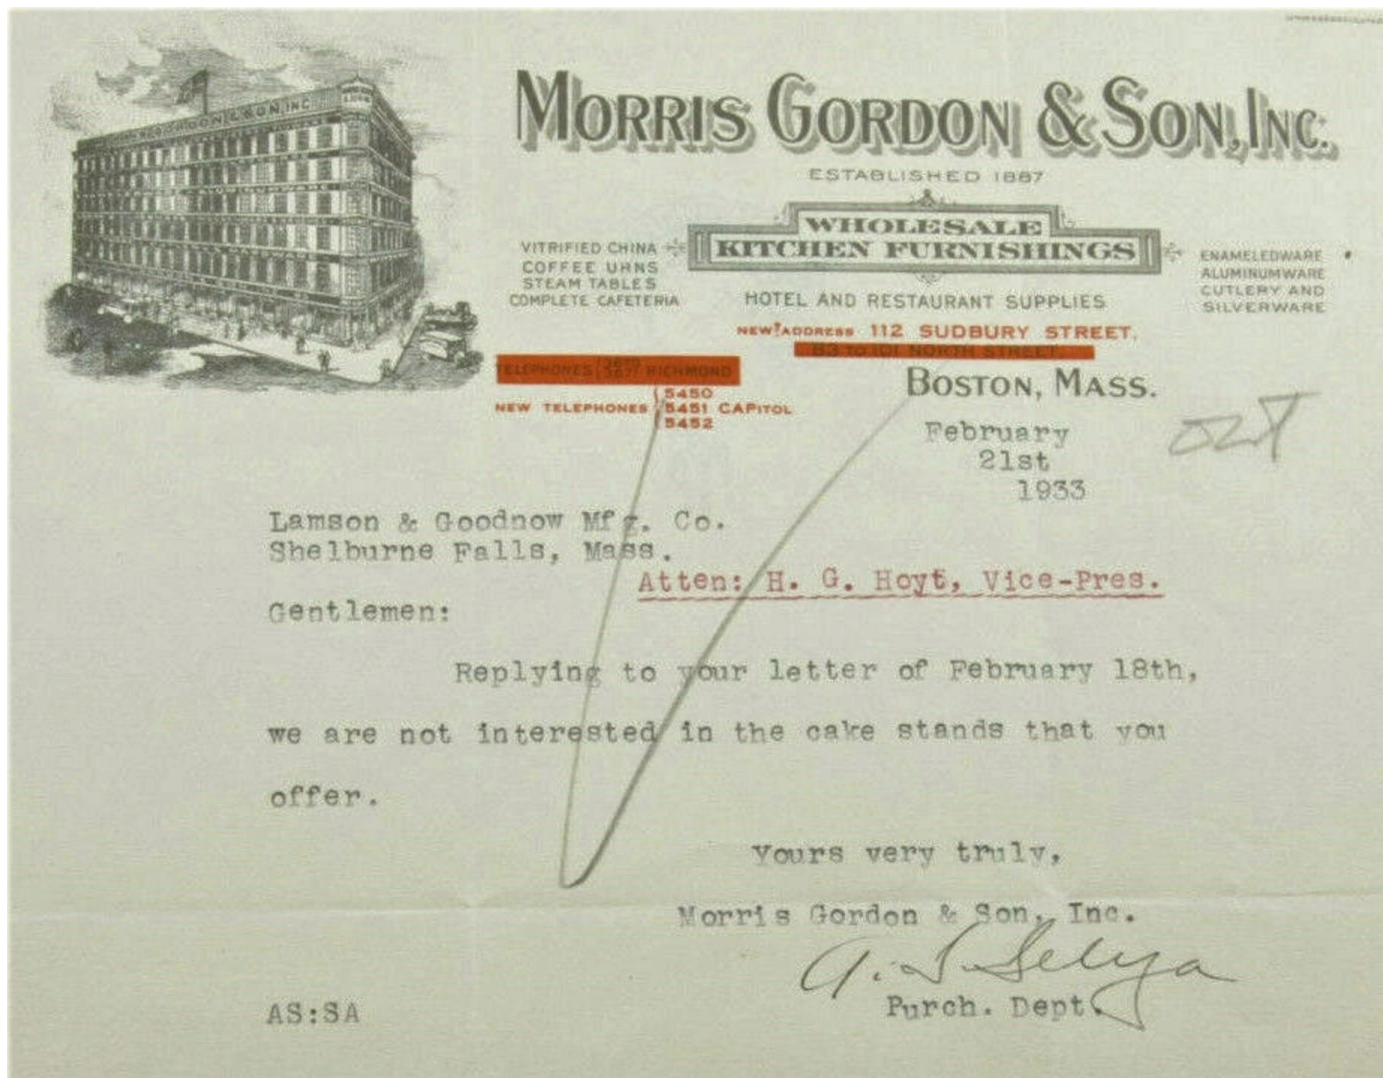 MORRIS GORDON & SON, INC.
ESTABLISHED 1887
WHOLESALE
KITCHEN FURNISHINGS
VITRIFIED CHINA
COFFEE URNS
STEAM TABLES
COMPLETE CAFETERIA
ENAMELEDWARE
ALUMINUMWARE
CUTLERY AND
SILVERWARE
HOTEL AND RESTAURANT SUPPLIES
NEW ADDRESS 112 SUDBURY STREET.
83 TO 101 NORTH STREET.
TELEPHONES RICHMOND
BOSTON, MASS.
5450
NEW TELEPHONES 5451 CAPITOL
5452
February
21st
1933
Lamson & Goodnow Mfg. Co.
Shelburne Falls, Mass.
Atten: H. G. Hoyt, Vice-Pres.
Gentlemen:
Replying to your letter of February 18th,
we are not interested in the cake stands that you
offer.
Yours very truly,
Morris Gordon & Son, Inc.
A. S. Selya
Purch. Dept.
AS:SA